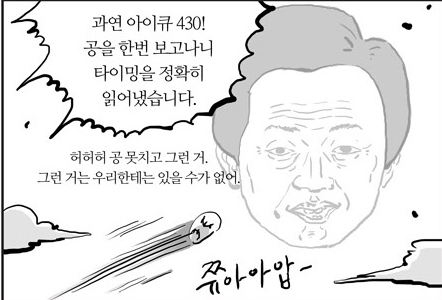 과연 아이큐 430!
공을 한번 보고나니
타이밍을 정확히
읽어냈습니다.
허허허 공 못치고 그런 거.
그런 거는 우리한테는 있을 수가 없어.
쮸아아압~